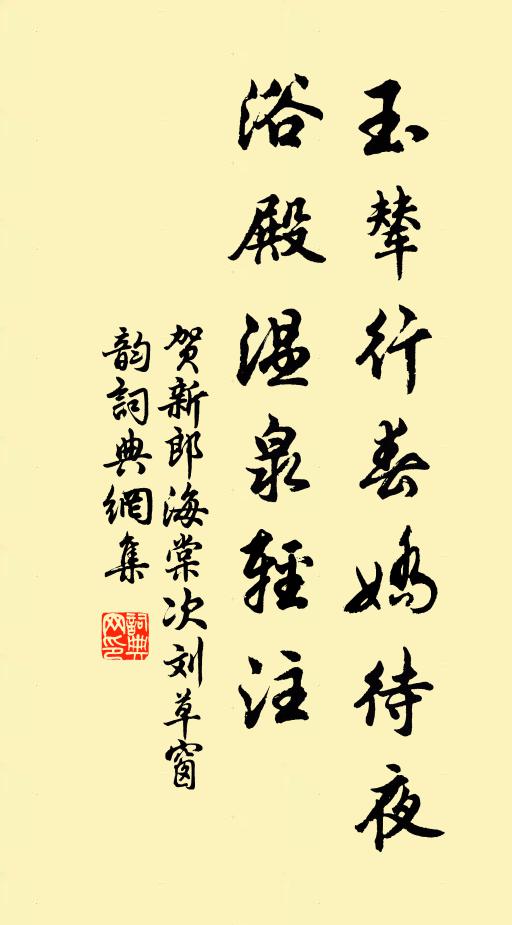 玉輦行春嬌待夜
浴殿温泉輕注
贺新郎海棠次刘草窗
韵詞典網集
詞典
网印